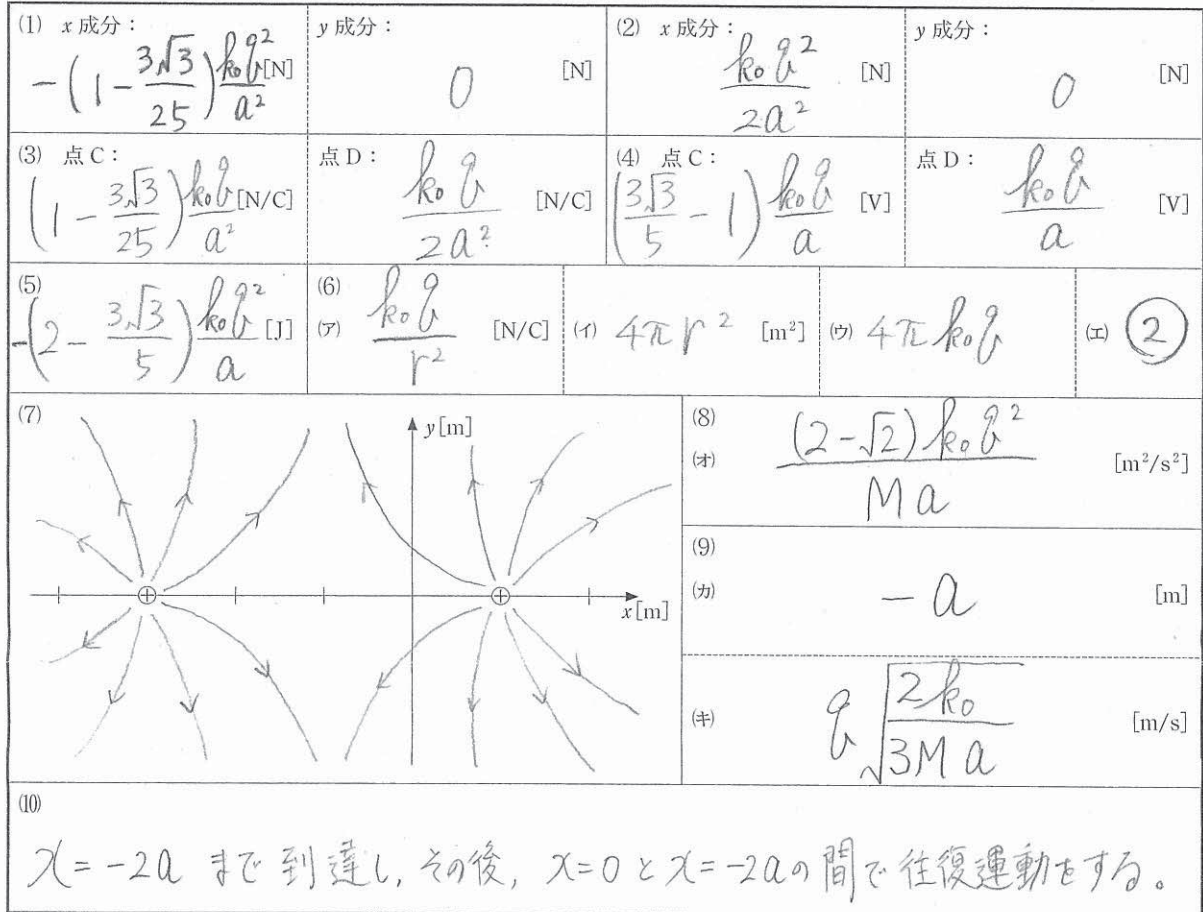 (1) x 成分： −(1 − 3√3/25) k₀q²/a² [N]
y 成分： 0 [N]
(2) x 成分： k₀q²/2a² [N]
y 成分： 0 [N]
(3) 点 C： (1 − 3√3/25) k₀q/a² [N/C]
点 D： k₀q/2a² [N/C]
(4) 点 C： (3√3/5 − 1) k₀q/a [V]
点 D： k₀q/a [V]
(5) −(2 − 3√3/5) k₀q²/a [J]
(6) (ア) k₀q/r² [N/C]
(イ) 4πr² [m²]
(ウ) 4πk₀q
(エ) ②
(7)
y[m]
x[m]
⊕ ⊕
(8)
(オ) (2−√2)k₀q²/Ma [m²/s²]
(9)
(カ) −a [m]
(キ) q√(2k₀/3Ma) [m/s]
(10)
x＝−2a まで到達し, その後, x＝0 と x＝−2a の間で往復運動をする。